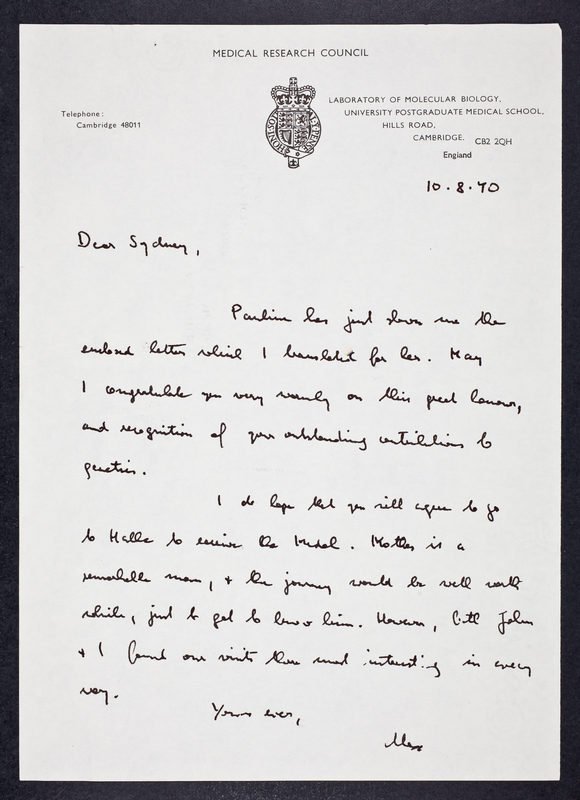 MEDICAL RESEARCH COUNCIL
Telephone:
Cambridge 48011
LABORATORY OF MOLECULAR BIOLOGY,
UNIVERSITY POSTGRADUATE MEDICAL SCHOOL,
HILLS ROAD,
CAMBRIDGE. CB2 2QH
England
10.8.70
Dear Sydney,
Pauline has just shown me the
enclosed letter which I translated for her. May
I congratulate you very warmly on this great honour,
and recognition of your outstanding contributions to
genetics.
I do hope that you will agree to go
to Halle to receive the Medal. Mothes is a
remarkable man, + the journey would be well worth
while, just to get to know him. However, both John
+ I found our visits there most interesting in every
way.
Yours ever,
Max